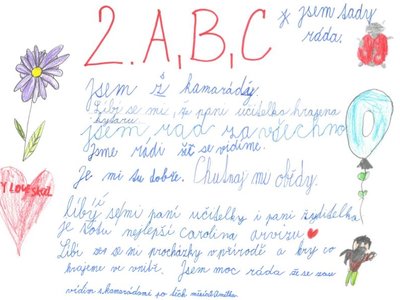 2.A,B,C
jsem tady
ráda.
jsem s kamarády.
Líbí se mi, že paní učitelka hraje na
kytaru.
jsem rád za všechno
Jsme rádi že se vidíme.
Je mi tu dobře. Chutnaj mi obědy.
Y LOVE SKOL
líbý se mi paní učitelky i paní ředitelka
je tosu nejlepší Carolina arvizu
Líbí se mi procházky v přírodě a hry co
hrajeme ve vnitř. Jsem moc ráda že se zas
vidím s kamarádami po těch